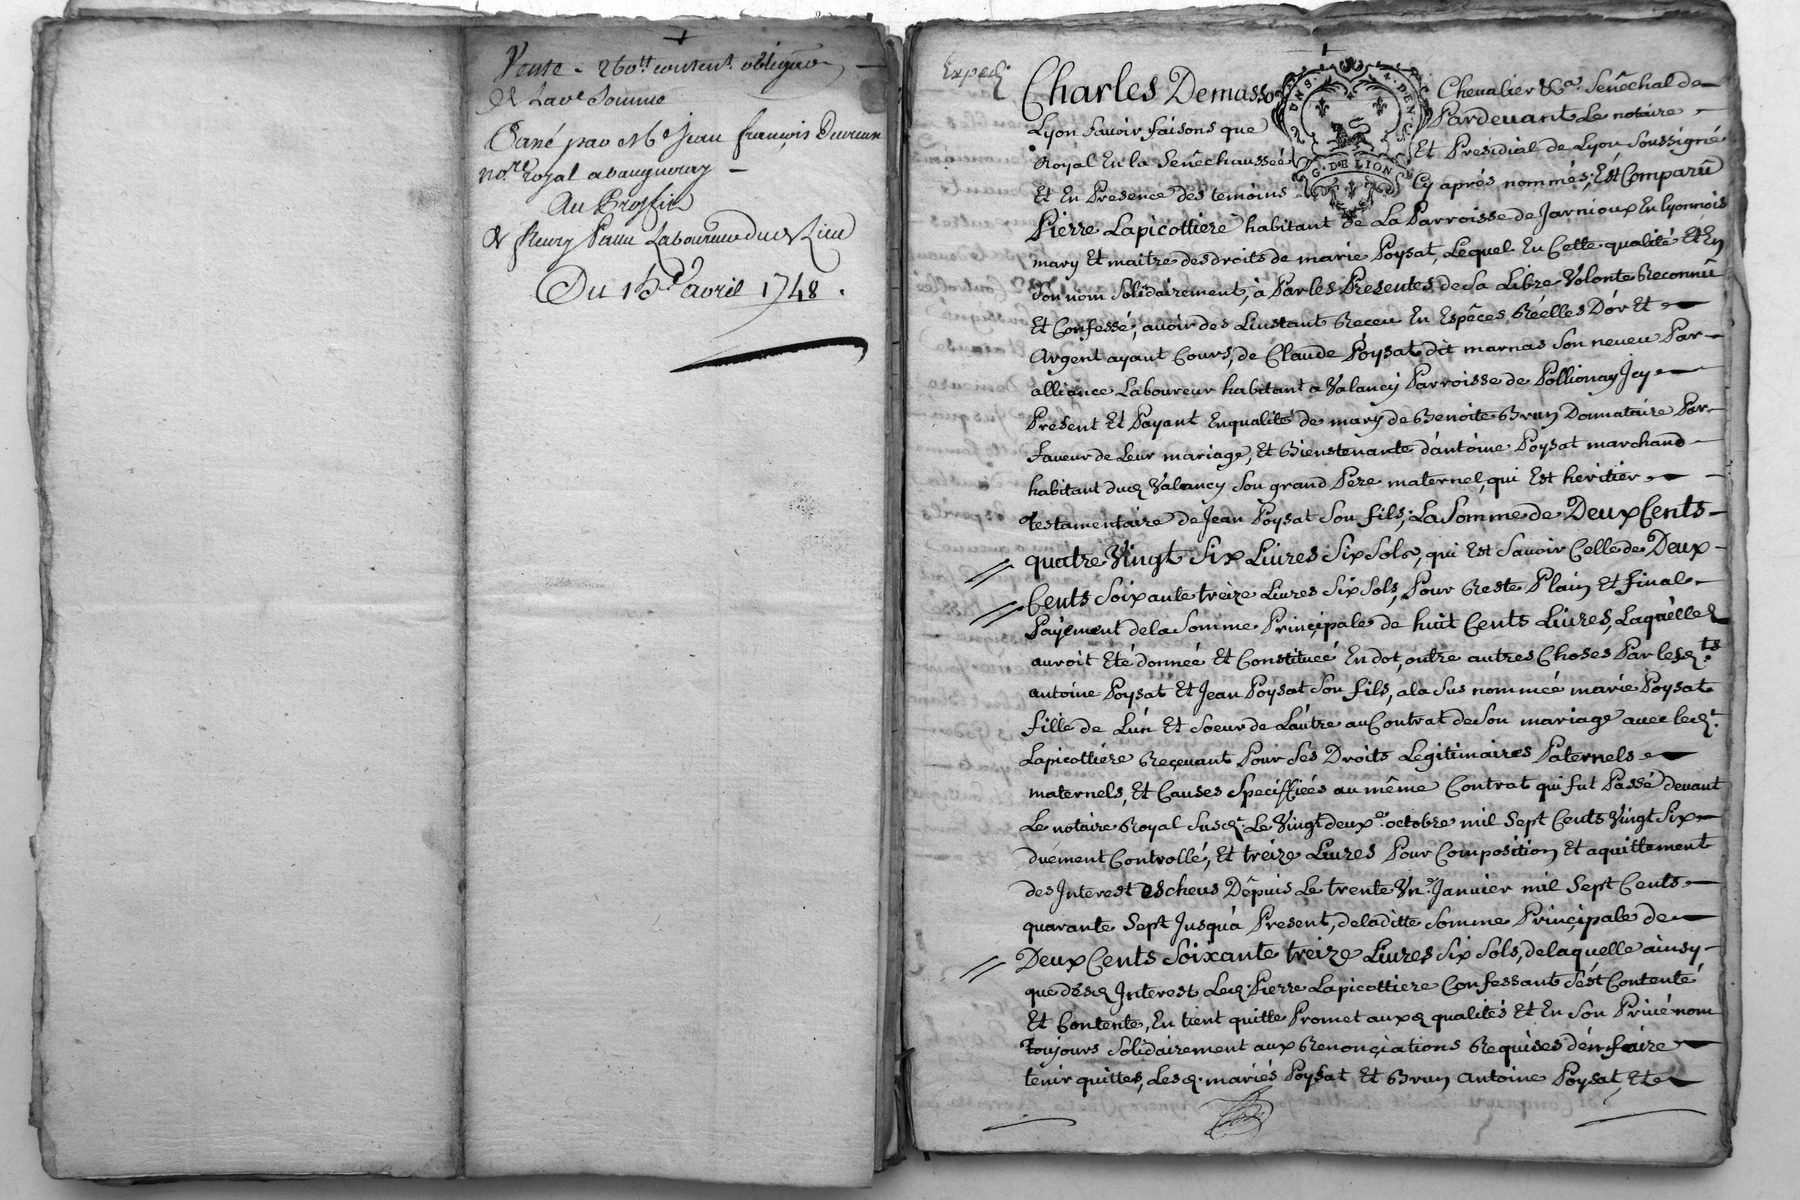 Vente . 260 tt content. obligaõn
& lad.e somme
Passé par M.e Jean françois
no.re Royal a vaugneray
Au Proffit
& fleury
Du 15.e avril 1748 .
Exped.
Charles Demasso Chevalier &.a Senêchal de
Lyon savoir faisons que Pardevant Le notaire
Royal En la Senêchaussée Et Présidial de Lyon soussigné
Et En Presence des temoins Cy aprés nommés, Est Comparû
G. DE LION
Pierre Lapicottiere habitant de La Parroisse de Jarnioux En lyonnois
mary Et maitre des droits de marie Poysat, Lequel En Cette qualité Et En
son nom solidairement, à Par les Presentes de sa Libre Volonte Reconnû
Et Confessé, avoir des Linstant Receu En Espêces Réelles D'or Et
Argent ayant Cours, de Claude Poysat dit marnas son neveu Par
alliance Laboureur habitant a Valancy Parroisse de Pollionay Jcy
Present Et Payant Enqualité de mary de Benoite Brun Donnataire Par
faveur de Leur mariage, Et Bienstenante d'antoine Poysat marchand
habitant dud Valancy son grand Pere maternel, qui Est heritier
testamentaire de Jean Poysat son fils; La somme de Deux Cents
quatre Vingt Six Livres Six Sols, qui Est savoir Celle de Deux
Cents Soixante treize Livres Six Sols, Pour Reste Plain Et final
Payement de la somme Principale de huit Cents Livres, Laquelle
auroit Eté donnée Et Constituée En dot, outre autres Choses Par lesd.ts
antoine Poysat Et Jean Poysat son fils, a la sus nommée marie Poysat
fille de Lún Et soeur de Lautre au Contrat de son mariage avec led.t
Lapicottiére Reçevant Pour ses Droits Legitimaires Paternels
maternels, Et Causes Speciffiées au même Contrat qui fut Passé devant
Le notaire Royal susd.t Le Vingt deux.e octobre mil Sept Cents Vingt Six
duëment Controllé, Et treize Livres Pour Composition Et aquittement
des Interest escheus Dêpuis Le trente Vn.e Janvier mil Sept Cents
quarante Sept Jusquà Present, de laditte somme Prinçipale de
Deux Cents Soixante treize Livres Six Sols, de laquelle ainsy
que desd Interest Led. Pierre Lapicottiere Confessant s'ést Contenté
Et Contente, En tient quitte Promet auxd qualités Et En son Privé nom
toujours solidairement aux Renonçiations Requises d'en faire
tenir quittes, Lesd. mariés Poysat Et Brun antoine Poysat, Et